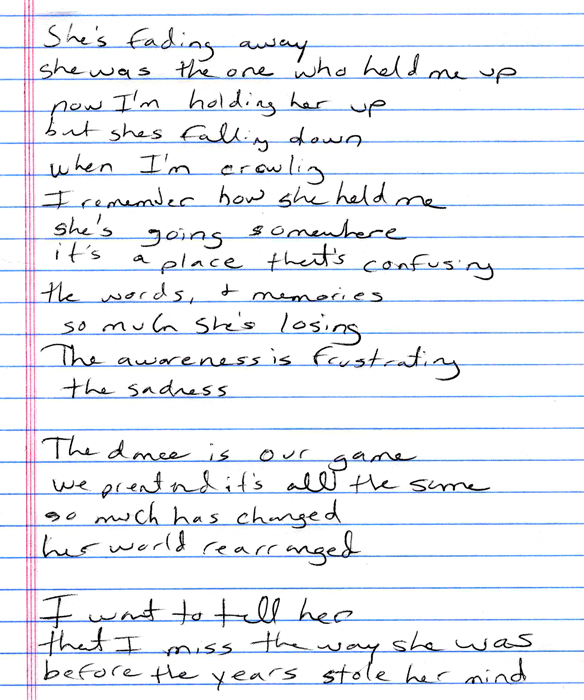 She's fading away
she was the one who held me up
now I'm holding her up
but shes falling down
when I'm crawlig
I remember how she held me
she's going somewhere
it's a place that's confusing
the words, & memories
so much she's losing
The awareness is frustrating
the sadness
The dance is our game
we pretend it's all the same
so much has changed
her world rearranged
I want to tell her
that I miss the way she was
before the years stole her mind